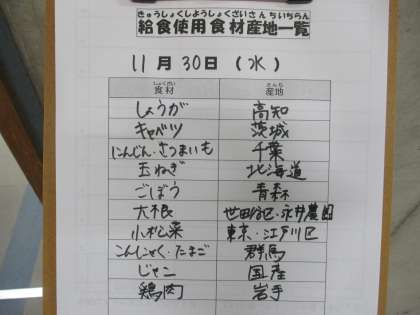 きゅうしょくしようしょくざいさんちいちらん
給食使用食材産地一覧
11月30日(水)
しょくざい さんち
食材 産地
しょうが 高知
キャベツ 茨城
にんじん・さつまいも 千葉
玉ねぎ 北海道
ごぼう 青森
大根 世田谷区・永井農園
小松菜 東京・江戸川区
こんにゃく・たまご 群馬
じゃこ 国産
鶏肉 岩手